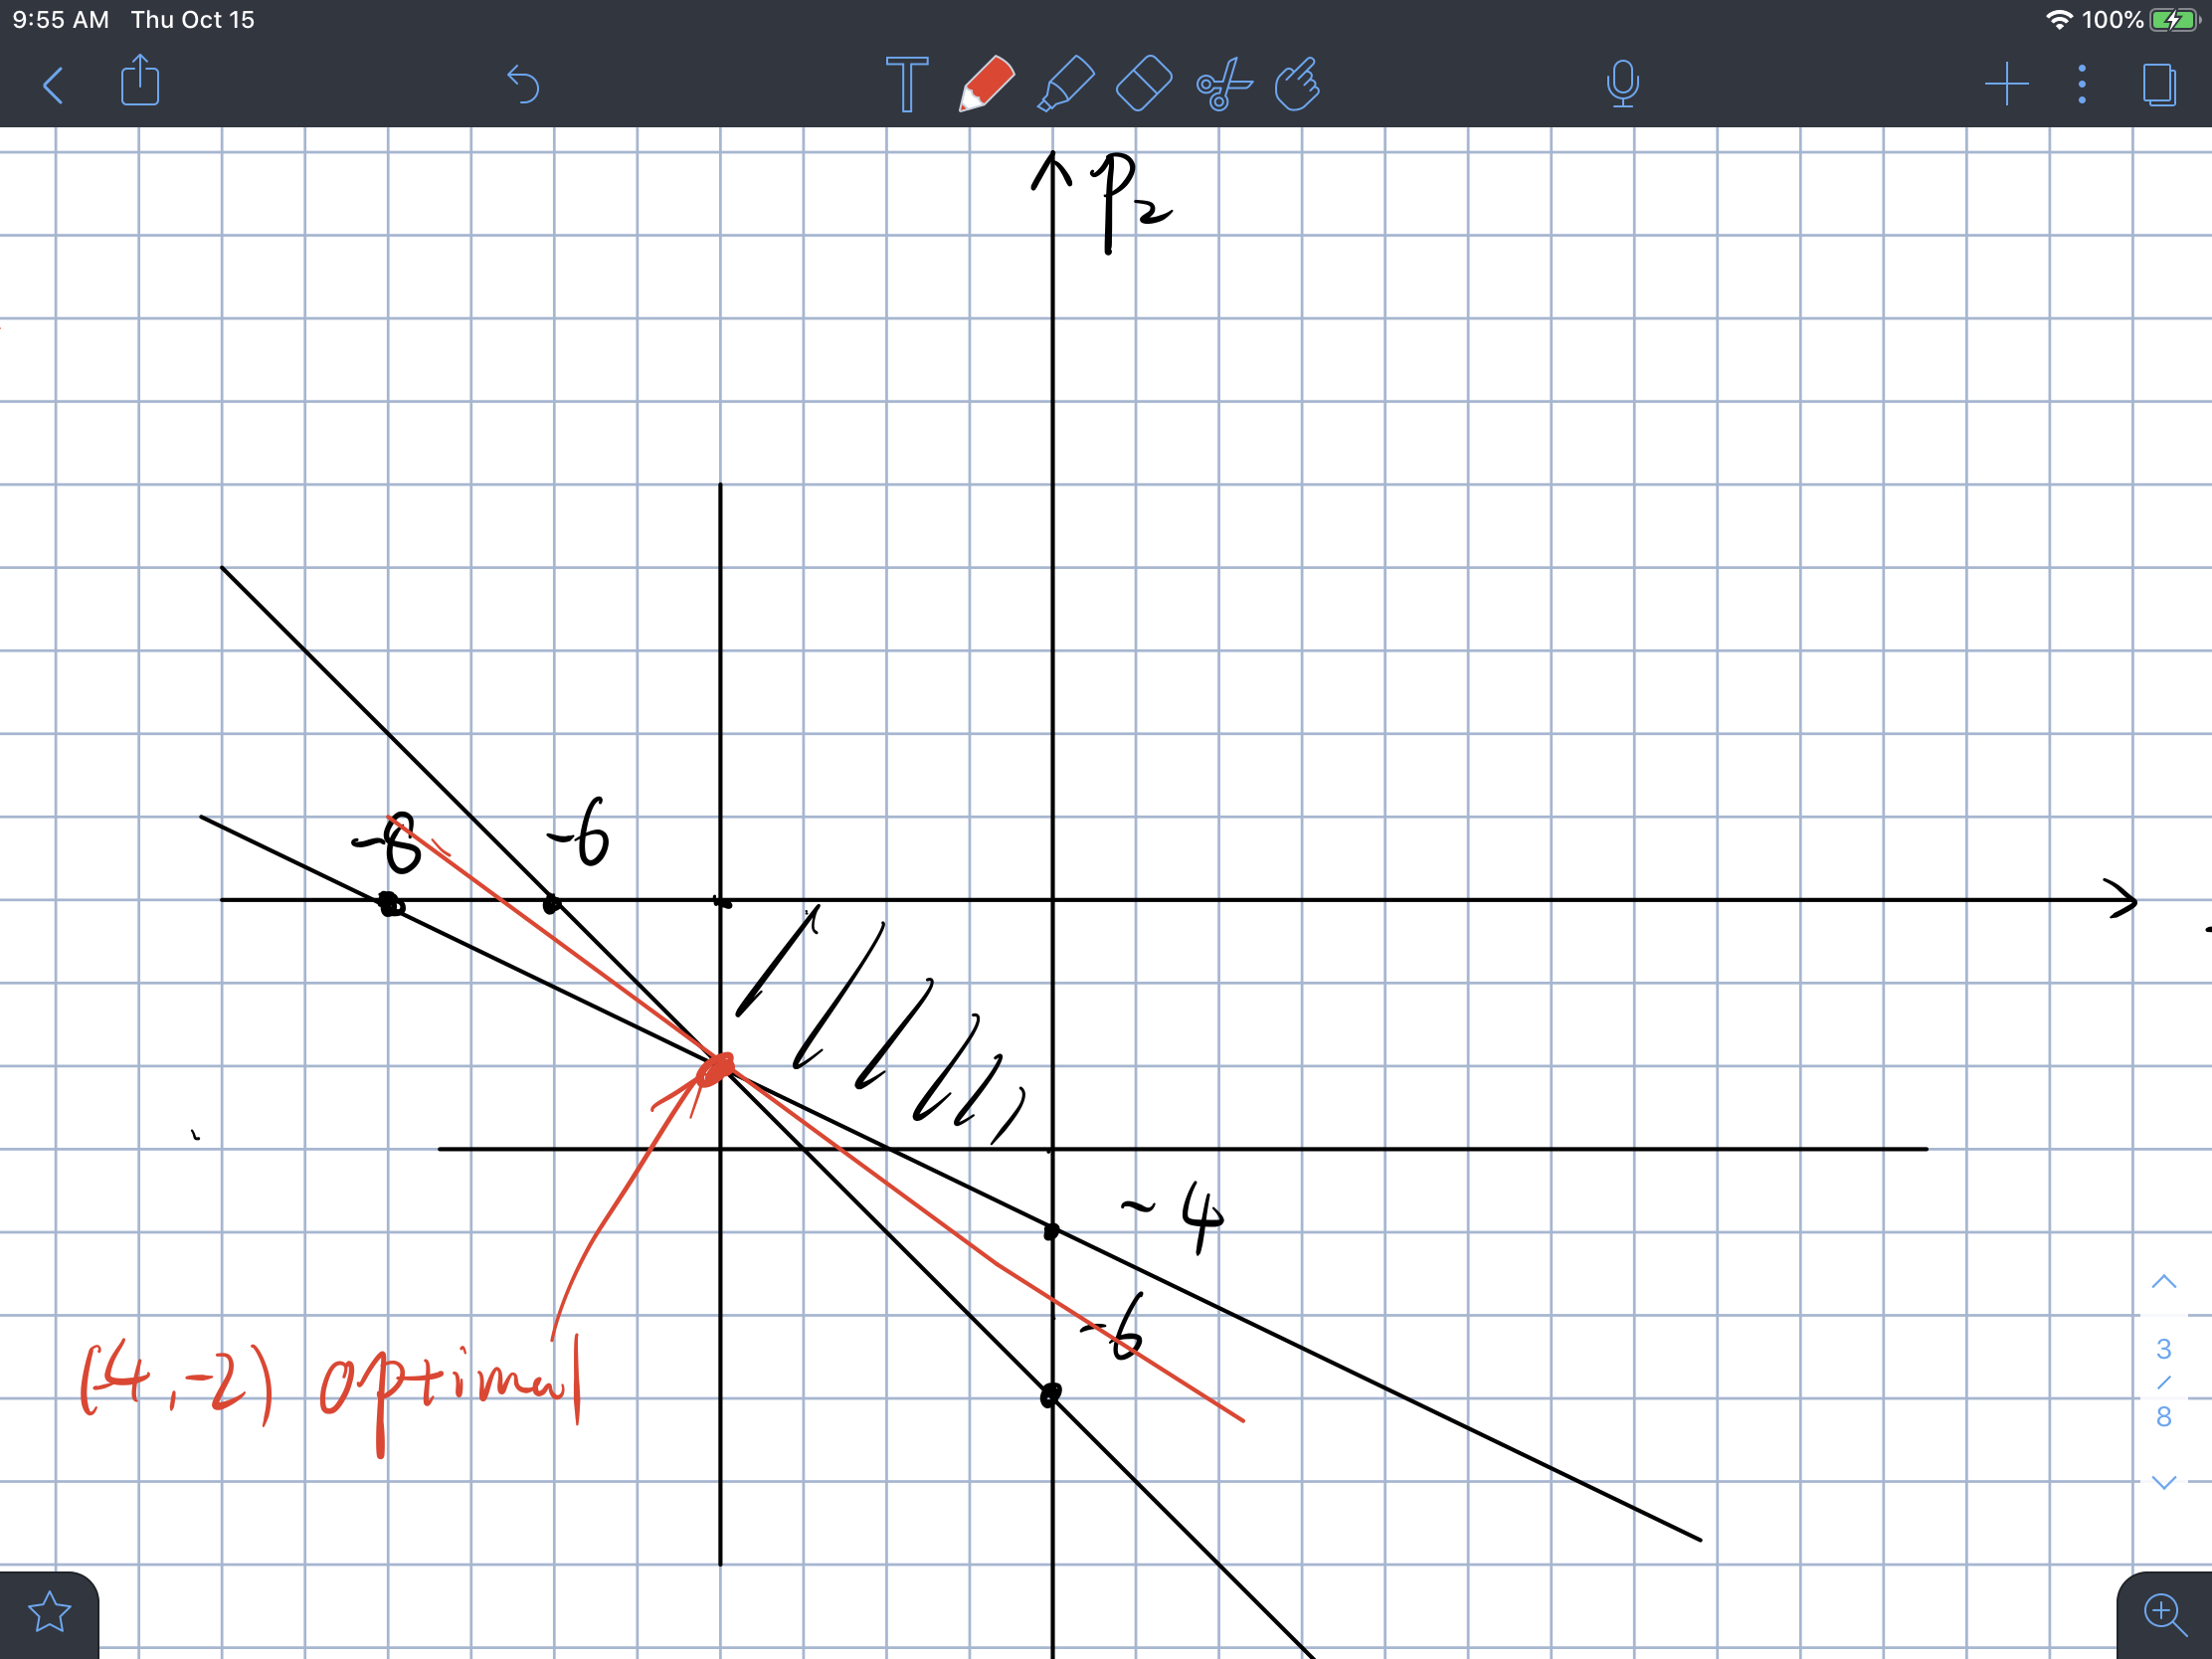 9:55 AM Thu Oct 15 100%
T
p2
-8 -6
~4
-6
(-4,-2) optimal
3
/
8